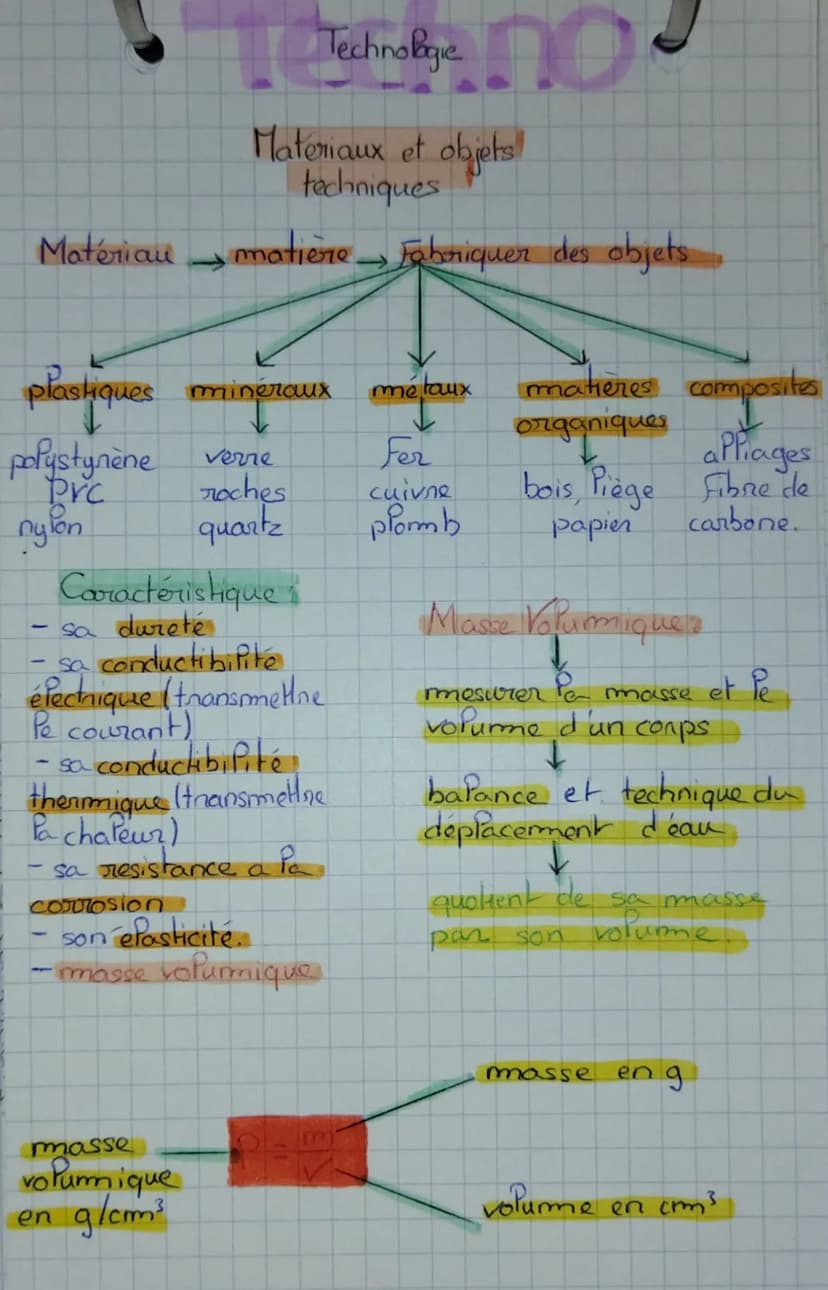 Techno
Technologie
Matériaux et objets
techniques
Matériau → matière → Fabriquer des objets
plastiques
polystyrène
PVC
nylon
minéraux
verre
roches
quartz
métaux
Fer
cuivre
plomb
matières
organiques
bois, liège
papier
composites
alliages
fibre de
carbone.
Caractéristique :
- sa dureté
- sa conductibilité
électrique (transmettre
le courant)
- sa conductibilité
thermique (transmettre
la chaleur)
- sa resistance a la
corrosion
- son élasticité.
- masse volumique
Masse Volumique :
mesurer la masse et le
volume d'un corps
balance et technique du
déplacement d'eau
quotient de sa masse
par son volume.
masse
volumique
en g/cm³
ρ = m/V
masse en g
volume en cm³